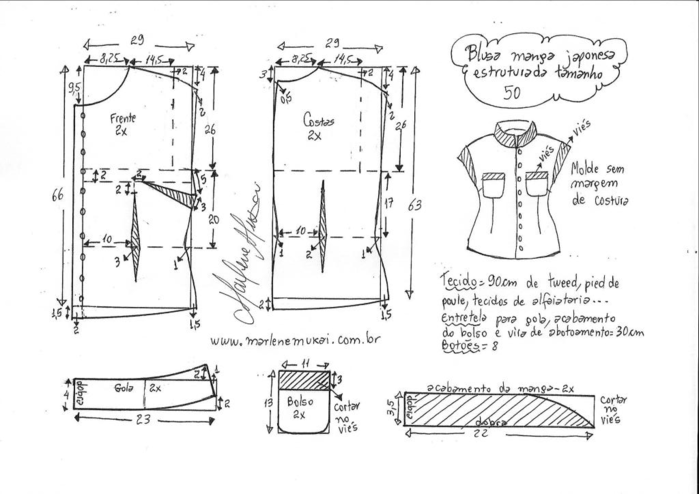 Blusa manga japonesa
estruturada tamanho
50
29
8,25 14,5
9,5
2
4
2
Frente
2x
26
66
2
2
2
5
3
20
10
3
1
1,5
2
1,5
29
8,25 14,5
3
0,5
2
4
2
Costas
2x
26
17
63
10
1
2
1
2
1,5
Marlene Mukai
www.marlenemukai.com.br
viés
viés
Molde sem
margem
de costura
Tecido = 90cm de tweed, pied de
poule, tecidos de alfaiataria...
Entretela para gola, acabamento
do bolso e vira de abotoamento = 30cm
Botões = 8
4
dobra
Gola 2x
2
1
2
23
11
3
13
Bolso
2x
Cortar
no
viés
acabamento da manga - 2x
3,5
dobra
dobra
22
Cortar
no
viés